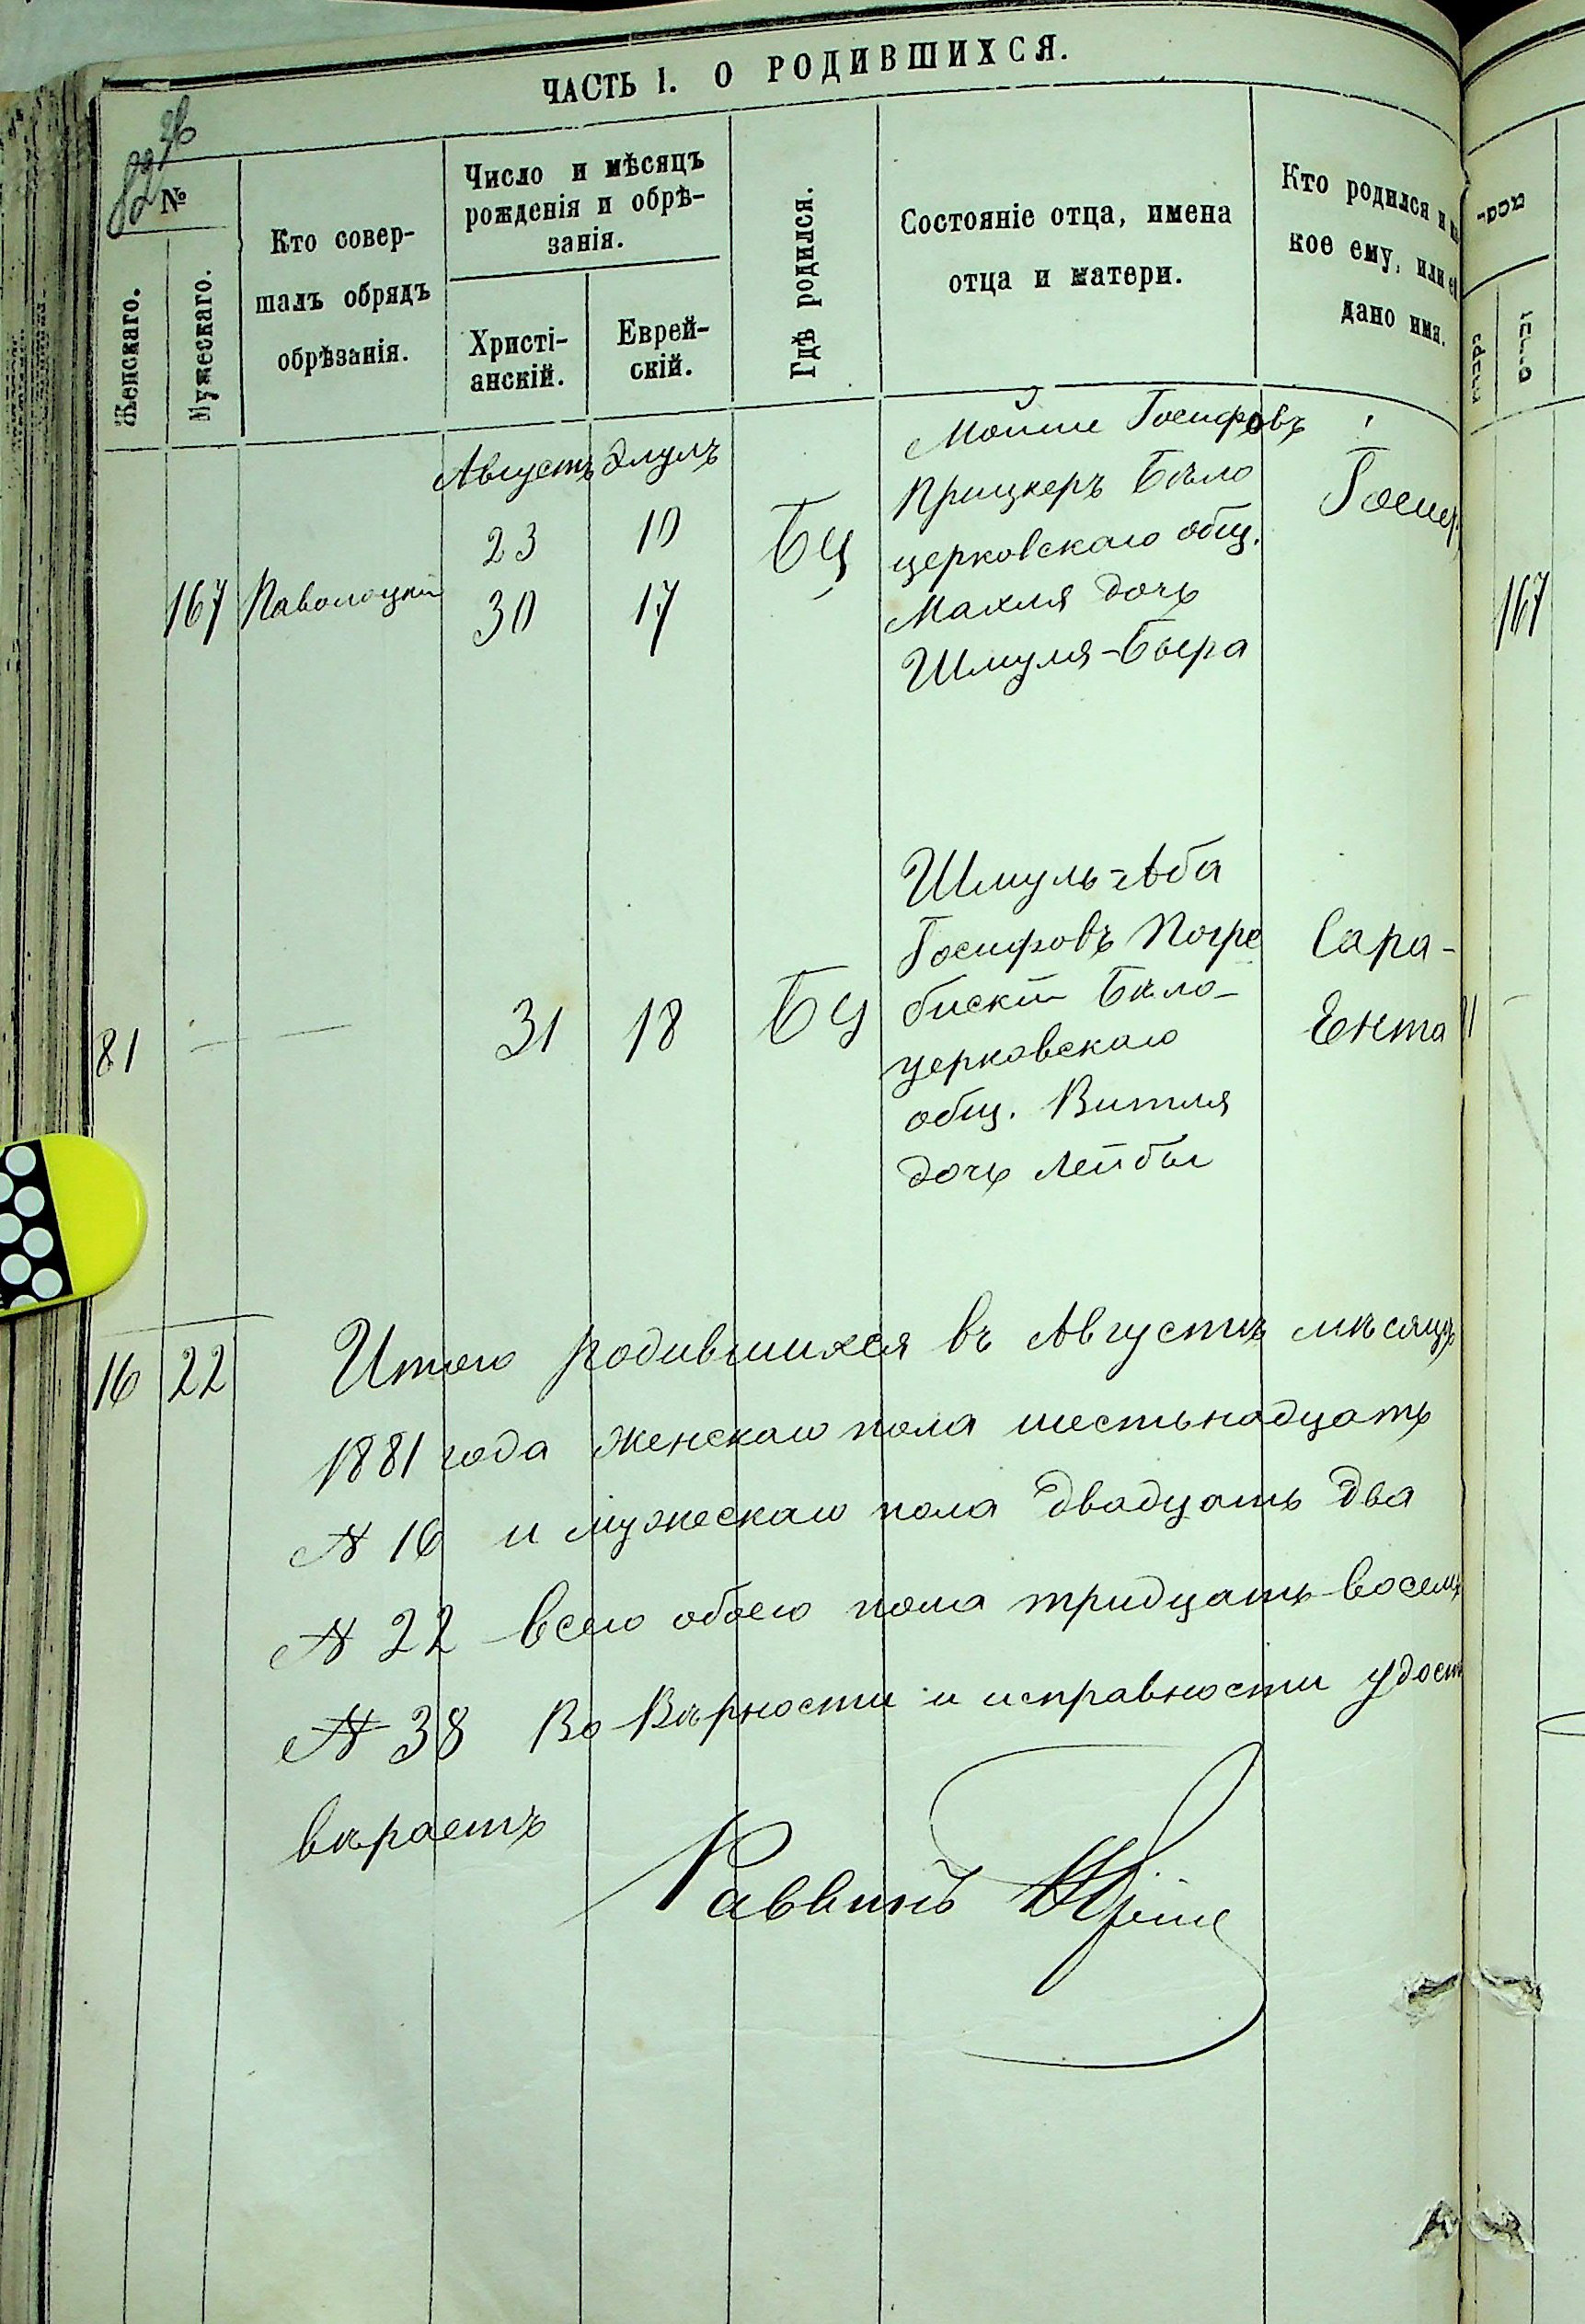 ЧАСТЬ I. О РОДИВШИХСЯ.
№
Женскаго.
Мужескаго.
Кто совер-
шалъ обрядъ
обрѣзанія.
Число и мѣсяцъ
рожденія и обрѣ-
занія.
Христі-
анскій.
Еврей-
скій.
Гдѣ родился.
Состояніе отца, имена
отца и матери.
Кто родился и ка
кое ему, или ей
дано имя.
Августъ Элулъ
167 Паволоцкій
23 10
30 17
БЦ
Мойше Іосифовъ
Прицкеръ Бѣло
церковскаго общ.
Махля дочь
Шмуля-Бера
Іосиф
167
81 — —
31 18
БЦ
Шмуль-Аба
Іосифовъ Погре
бискій Бѣло-
церковскаго
общ. Витля
дочь Лейбы
Сара-
Ента
16 22 Итого родившихся въ Августѣ мѣсяцѣ
1881 года женскаго пола шестьнадцать
№ 16 и мужескаго пола двадцать два
№ 22 всего обоего пола тридцать восемь
№ 38 Во Вѣрности и исправности удосто
вѣраетъ
Раввинъ